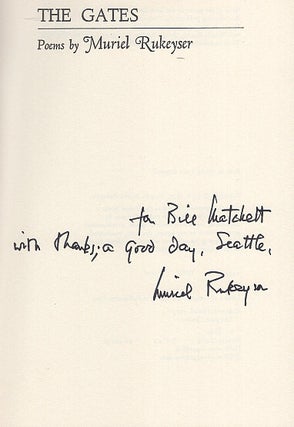 THE GATES
Poems by Muriel Rukeyser
for Bill Matchett
with thanks; a good day, Seattle,
Muriel Rukeyser